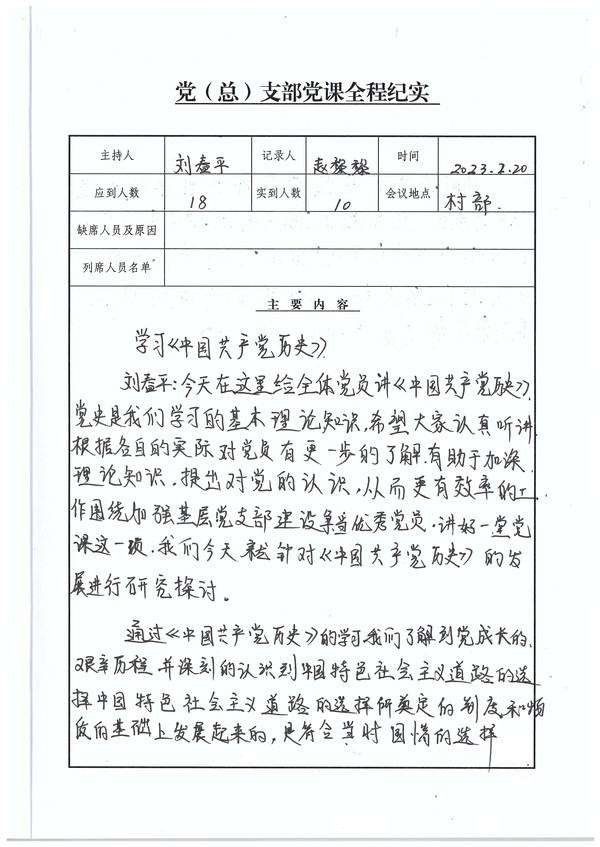 党（总）支部党课全程纪实
主持人 刘春平 记录人 赵黎黎 时间 2023.2.20
应到人数 18 实到人数 10 会议地点 村部.
缺席人员及原因
列席人员名单
主要内容
学习《中国共产党历史》
刘春平:今天在这里给全体党员讲《中国共产党历史》,
党史是我们学习的基本理论知识,希望大家认真听讲,
根据各自的实际对党员有更一步的了解.有助于加深
理论知识,提出对党的认识,从而更有效率的工
作围绕加强基层党支部建设争当优秀党员,讲好一堂党
课这一项,我们今天就针对《中国共产党历史》的发
展进行研究探讨。
通过《中国共产党历史》的学习,我们了解到党成长的
艰辛历程,并深刻的认识到中国特色社会主义道路的选
择中国特色社会主义道路的选择所奠定的制度和物
质的基础上发展起来的,是符合当时国情的选择